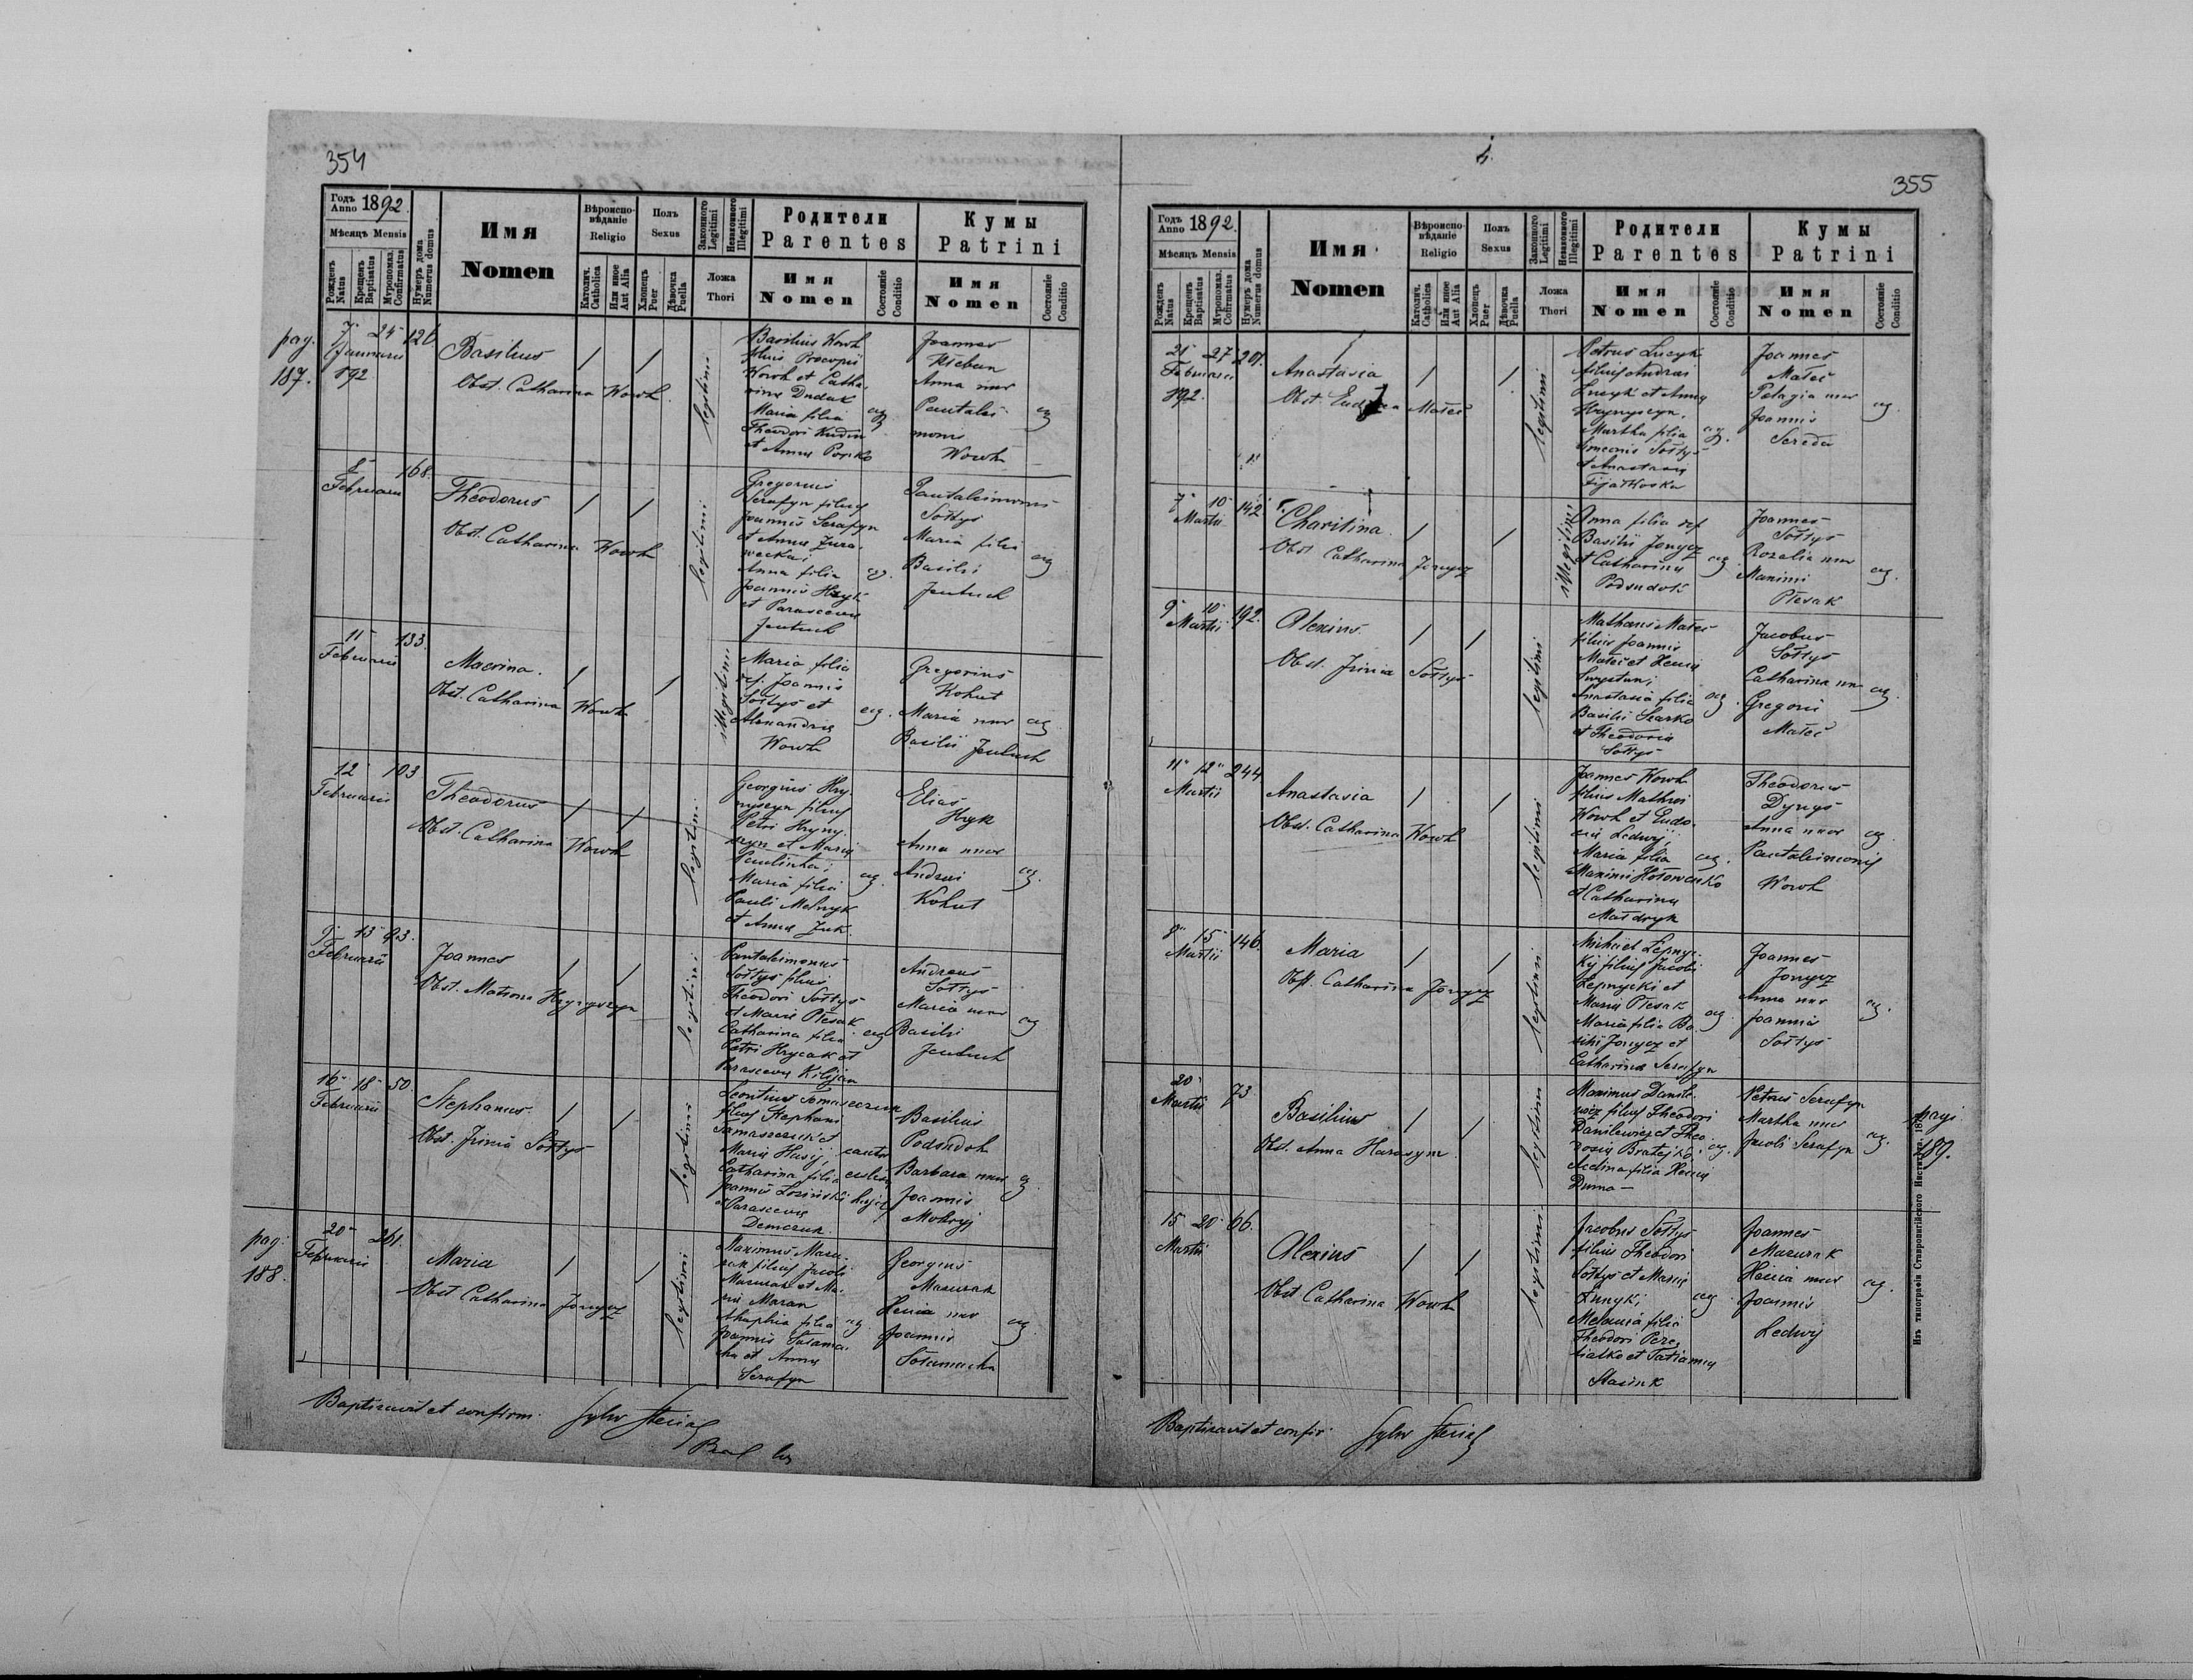 354
Годъ Anno 1892.
Мѣсяцъ Mensis
Рожденъ Natus
Крещенъ Baptisatus
Муропомаз. Confirmatus
Нумеръ дома Numerus domus
Имя
Nomen
Вѣроиспо-
вѣданіе
Religio
Католич. Catholica
Или иное Aut Alia
Полъ
Sexus
Хлопецъ Puer
Дѣвочка Puella
Законного Legitimi
Незаконного Illegitimi
Ложа
Thori
Родители
Parentes
Имя
Nomen
Состояніе Conditio
Кумы
Patrini
Имя
Nomen
Состояніе Conditio
pag.
187.
7 24 126
Januarii
892
Basilius
Obst. Catharina Wowk
legitimi
Basilius Wowk
filius Procopii
Wowk et Catha-
rina Dudak
Maria filia
Theodori Kudin
et Anna Popko
ag
Joannes
Anna uxor
Pantalei-
monis
Wowk
ag
8
Februarii
168.
Theodorus
Obst. Catharina Wowk
legitimi
Gregorius
Serafyn filius
Joannis Serafyn
et Anna Zura-
wecka;
Anna filia
Joannis Hryk
et Parascevia
Jentuch
ag.
Pantaleimonis
Sołtys
Maria filia
Basilii
Jentuch
ag
11
Februarii
133.
Macrina.
Obst. Catharina Wowk
illegitimi
Maria filia
def. Joannis
Sołtys et
Alexandria
Wowk
ag.
Gregorius
Kohut
Maria uxor
Basilii Jentuch
ag
12
Februarii
103
Theodorus
Obst. Catharina Wowk
legitimi
Georgius Hry-
nyszyn filius
Petri Hryny-
szyn et Maria
Maria filia
Pauli Melnyk
et Anna Zuk.
ag.
Elias
Hryk
Anna uxor
Andrei
Kohut
ag.
9 13 93.
Februarii
Joannes
Obst. Matrona Hrynyszyn
legitimi
Pantaleimonus
Sołtys filius
Theodori Sołtys
et Maria Plesak
Catharina filia
Petri Hrycak et
Parascevia Kilijan
ag
Andreas
Sołtys
Maria uxor
Basilii
Jentuch
ag
16 18 50.
Februarii
Stephanus
Obst. Irinia Sołtys
legitimi
Leontius Tomaszczuk
filius Stephani
Tomaszczuk et
Maria Husij,
Catharina filia
Joannis Łosiński
et Parascevia
Demczuk.
cantor
eccles.
hujat
Basilius
Podsudok
Barbara uxor
Joannis
Mokryj
ag
pag:
188.
20
Februarii
261.
Maria
Obst Catharina Jonycz
legitimi
Maximus Mazu-
rak filius Jacobi
Mazurak et Ma-
ria Maran
Ahaphia filia
Joannis Sołama-
cha et Anna
Serafyn
ag
Georgius
Mazurak
Xenia uxor
Joannis
Sołamacha
ag
Baptisavit et confirm. Sylw
355
Годъ Anno 1892.
Мѣсяцъ Mensis
Рожденъ Natus
Крещенъ Baptisatus
Муропомаз. Confirmatus
Нумеръ дома Numerus domus
Имя
Nomen
Вѣроиспо-
вѣданіе
Religio
Католич. Catholica
Или иное Aut Alia
Полъ
Sexus
Хлопецъ Puer
Дѣвочка Puella
Законного Legitimi
Незаконного Illegitimi
Ложа
Thori
Родители
Parentes
Имя
Nomen
Состояніе Conditio
Кумы
Patrini
Имя
Nomen
Состояніе Conditio
21 27 201.
Februarii
892.
Anastasia
Obst. Małeć
legitimi
Petrus Lucyk
filius Andreas
Lucyk et Anna
Hrynyszyn.
Martha filia
Simeonis Sołtys
et Anastasia
Fijałkoska
ag.
Joannes
Małeć
Pelagia uxor
Joannis
Sereda
ag.
7 10 142
Martii
Charitina.
Obst Catharina Jonycz
illegitimi
Anna filia def
Basilii Jonycz
et Catharina
Podsudok
ag
Joannes
Sołtys
Rozalia uxor
Maximi
Plesak
ag.
9 10 192.
Martii
Alexius.
Obst. Irinia Sołtys
legitimi
Mathaus Małeć
filius Joannis
Małeć et Xenia
Anastasia filia
Basilii Szarko
et Theodoria
Sołtys
ag
Jacobus
Sołtys
Catharina uxor
Gregorii
Małeć
ag.
11 12 244.
Martii
Anastasia
Obst. Catharina Wowk
legitimi
Joannes Wowk
filius Mathei
Wowk et Eudo-
cia Ledwij;
Maria filia
Maximi Hołowczko
et Catharina
Małdryk
ag.
Theodorus
Dynys
Anna uxor
Pantaleimonis
Wowk
ag
8 15 146.
Martii
Maria
Obst. Catharina Jonycz
legitimi
Michael Łepnyc-
kij filius Jacobi
Łepnycki et
Maria Plesak
Maria filia Ba-
silii Jonycz et
Catharina Serafyn
ag
Joannes
Jonycz
Anna uxor
Joannis
Sołtys
ag.
20
Martii
73
Basilius
Obst. Anna Harasym
legitimi
Maximus Danile-
wicz filius Theodori
Danilewicz et Theo-
dosia Bratejko;
Acelina filia Xenia
Duma
ag.
Petrus Serafyn
Martha uxor
Jacobi Serafyn
ag.
pag:
189.
15 20 66.
Martii
Alexius
Obst Catharina Wowk
legitimi
Jacobus Sołtys
filius Theodori
Sołtys et Maria
Melania filia
Theodori Pere-
liatko et Tatianna
Stasiuk
ag
Joannes
Mazurak
Xenia uxor
Joannis
Ledwij
ag.
Baptisavit et confir. Sylw
Изъ типографіи Ставропигійского Института.